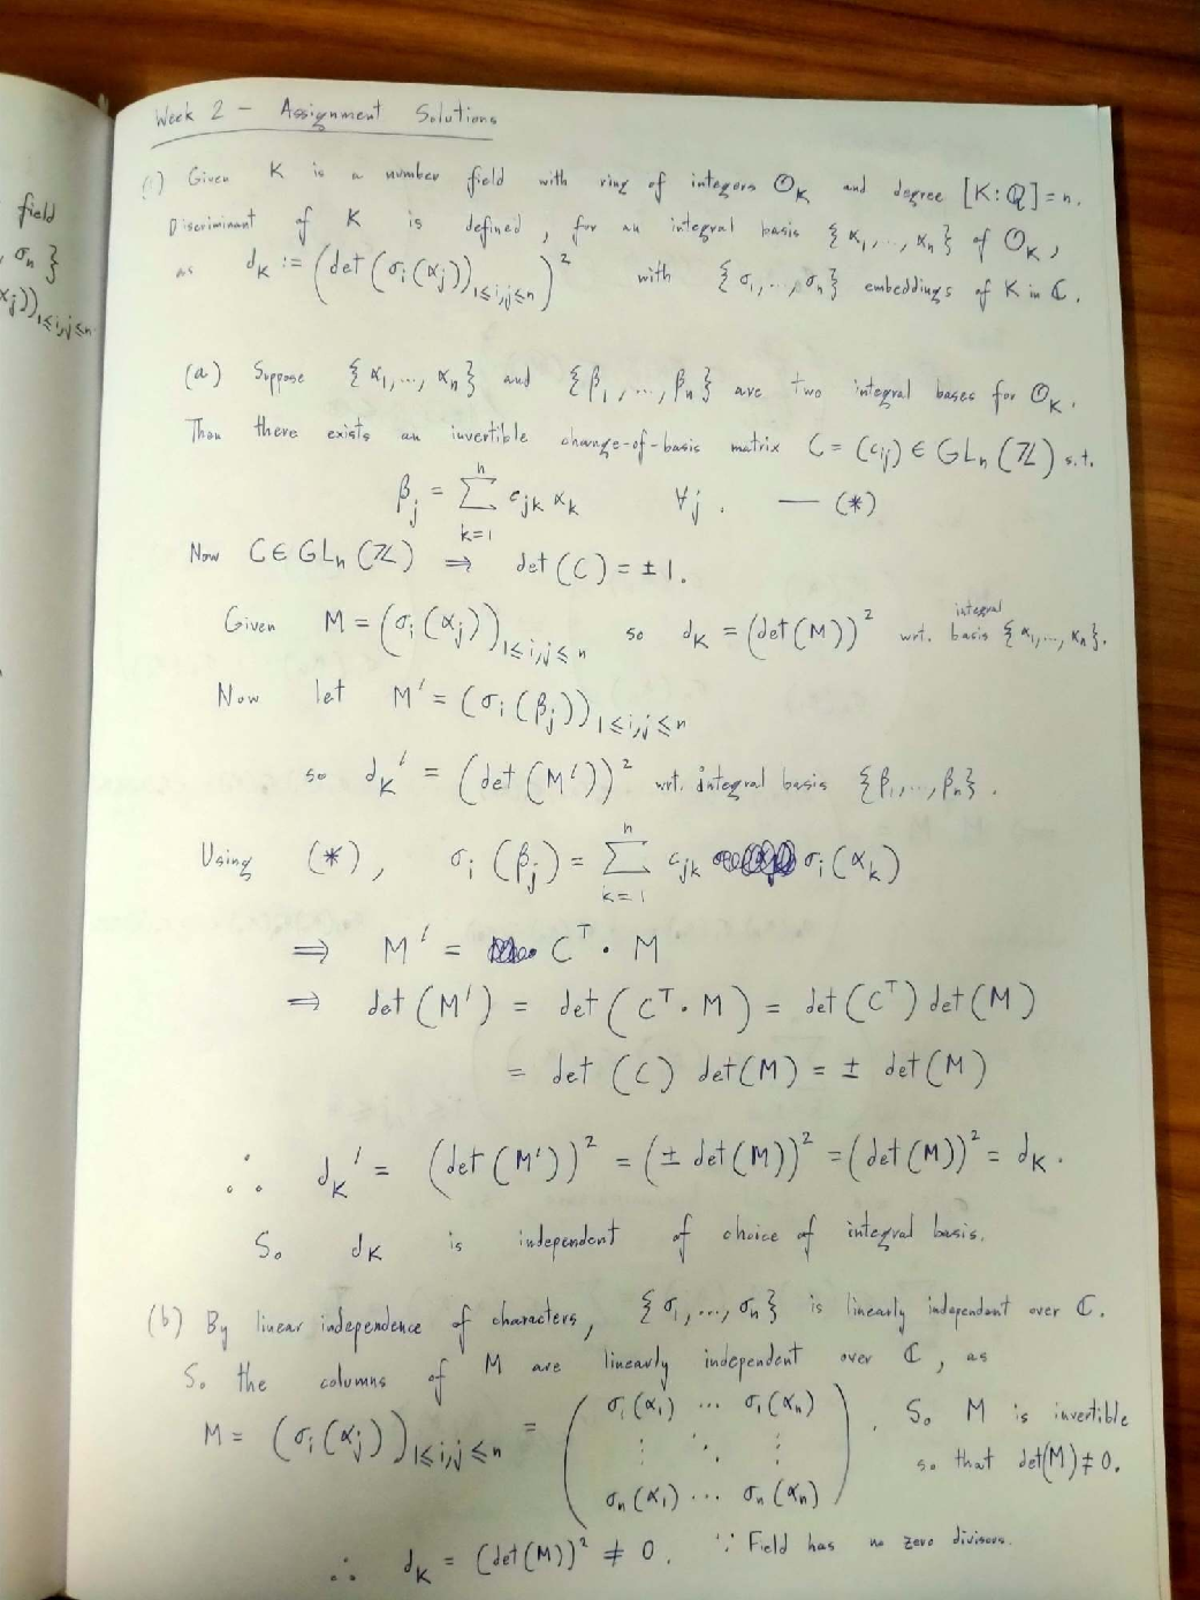 field
, σn }
αj))1≤i,j≤n
Week 2 - Assignment Solutions
(1) Given K is a number field with ring of integers O_K and degree [K:ℚ]=n.
Discriminant of K is defined, for an integral basis {α1,..,αn} of O_K,
as d_K := (det(σi(αj))1≤i,j≤n)² with {σ1,...,σn} embeddings of K in ℂ.
(a) Suppose {α1,...,αn} and {β1,...,βn} are two integral bases for O_K.
Then there exists an invertible change-of-basis matrix C = (cij) ∈ GLn(ℤ) s.t.
βj = Σ_{k=1}^{n} cjk αk ∀j. — (*)
Now C ∈ GLn(ℤ) ⇒ det(C) = ±1.
Given M = (σi(αj))1≤i,j≤n so d_K = (det(M))² wrt. integral basis {α1,...,αn}.
Now let M' = (σi(βj))1≤i,j≤n
so d_K' = (det(M'))² wrt. integral basis {β1,...,βn}.
Using (*), σi(βj) = Σ_{k=1}^{n} cjk σi(αk)
⇒ M' = C^T · M
⇒ det(M') = det(C^T · M) = det(C^T) det(M)
= det(C) det(M) = ± det(M)
∴ d_K' = (det(M'))² = (± det(M))² = (det(M))² = d_K.
So d_K is independent of choice of integral basis.
(b) By linear independence of characters, {σ1,...,σn} is linearly independent over ℂ.
So the columns of M are linearly independent over ℂ, as
M = (σi(αj))1≤i,j≤n = ( σ1(α1) ... σ1(αn) ⋮ ⋱ ⋮ σn(α1) ... σn(αn) ). So M is invertible
so that det(M) ≠ 0.
∴ d_K = (det(M))² ≠ 0. ∵ Field has no zero divisors.